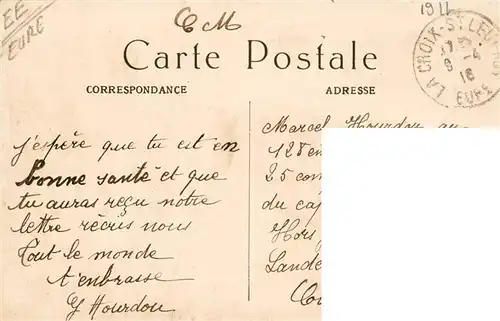 EE
EURE
C M
1911
LA CROIX-ST LEUFROY
17
9 -4
16
EURE
Carte Postale
CORRESPONDANCE
ADRESSE
j'espère que tu est en
bonne santé et que
tu auras reçu notre
lettre récris nous
Tout le monde
t'enbrasse
Y Hourdou
Marcel Hourdou au
128 en
25 com
du ca
Hors
Lande